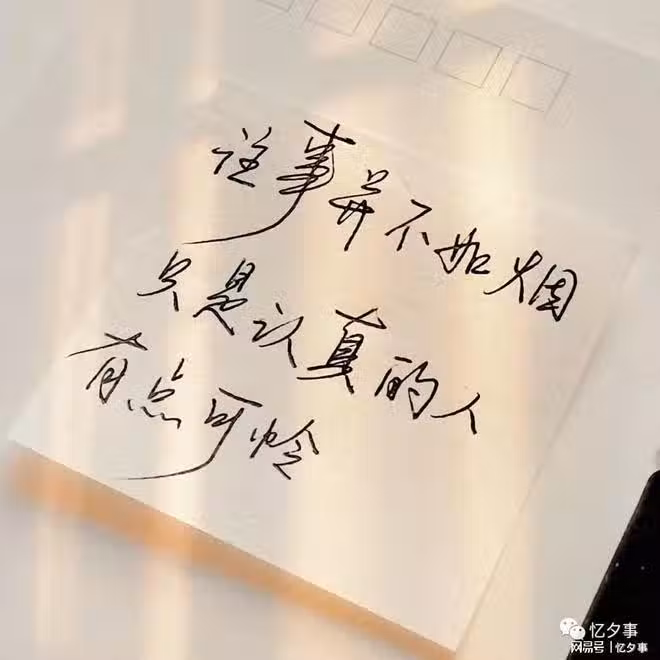 往事并不如烟
只是认真的人
有点可怜
忆夕事
网易号 | 忆夕事